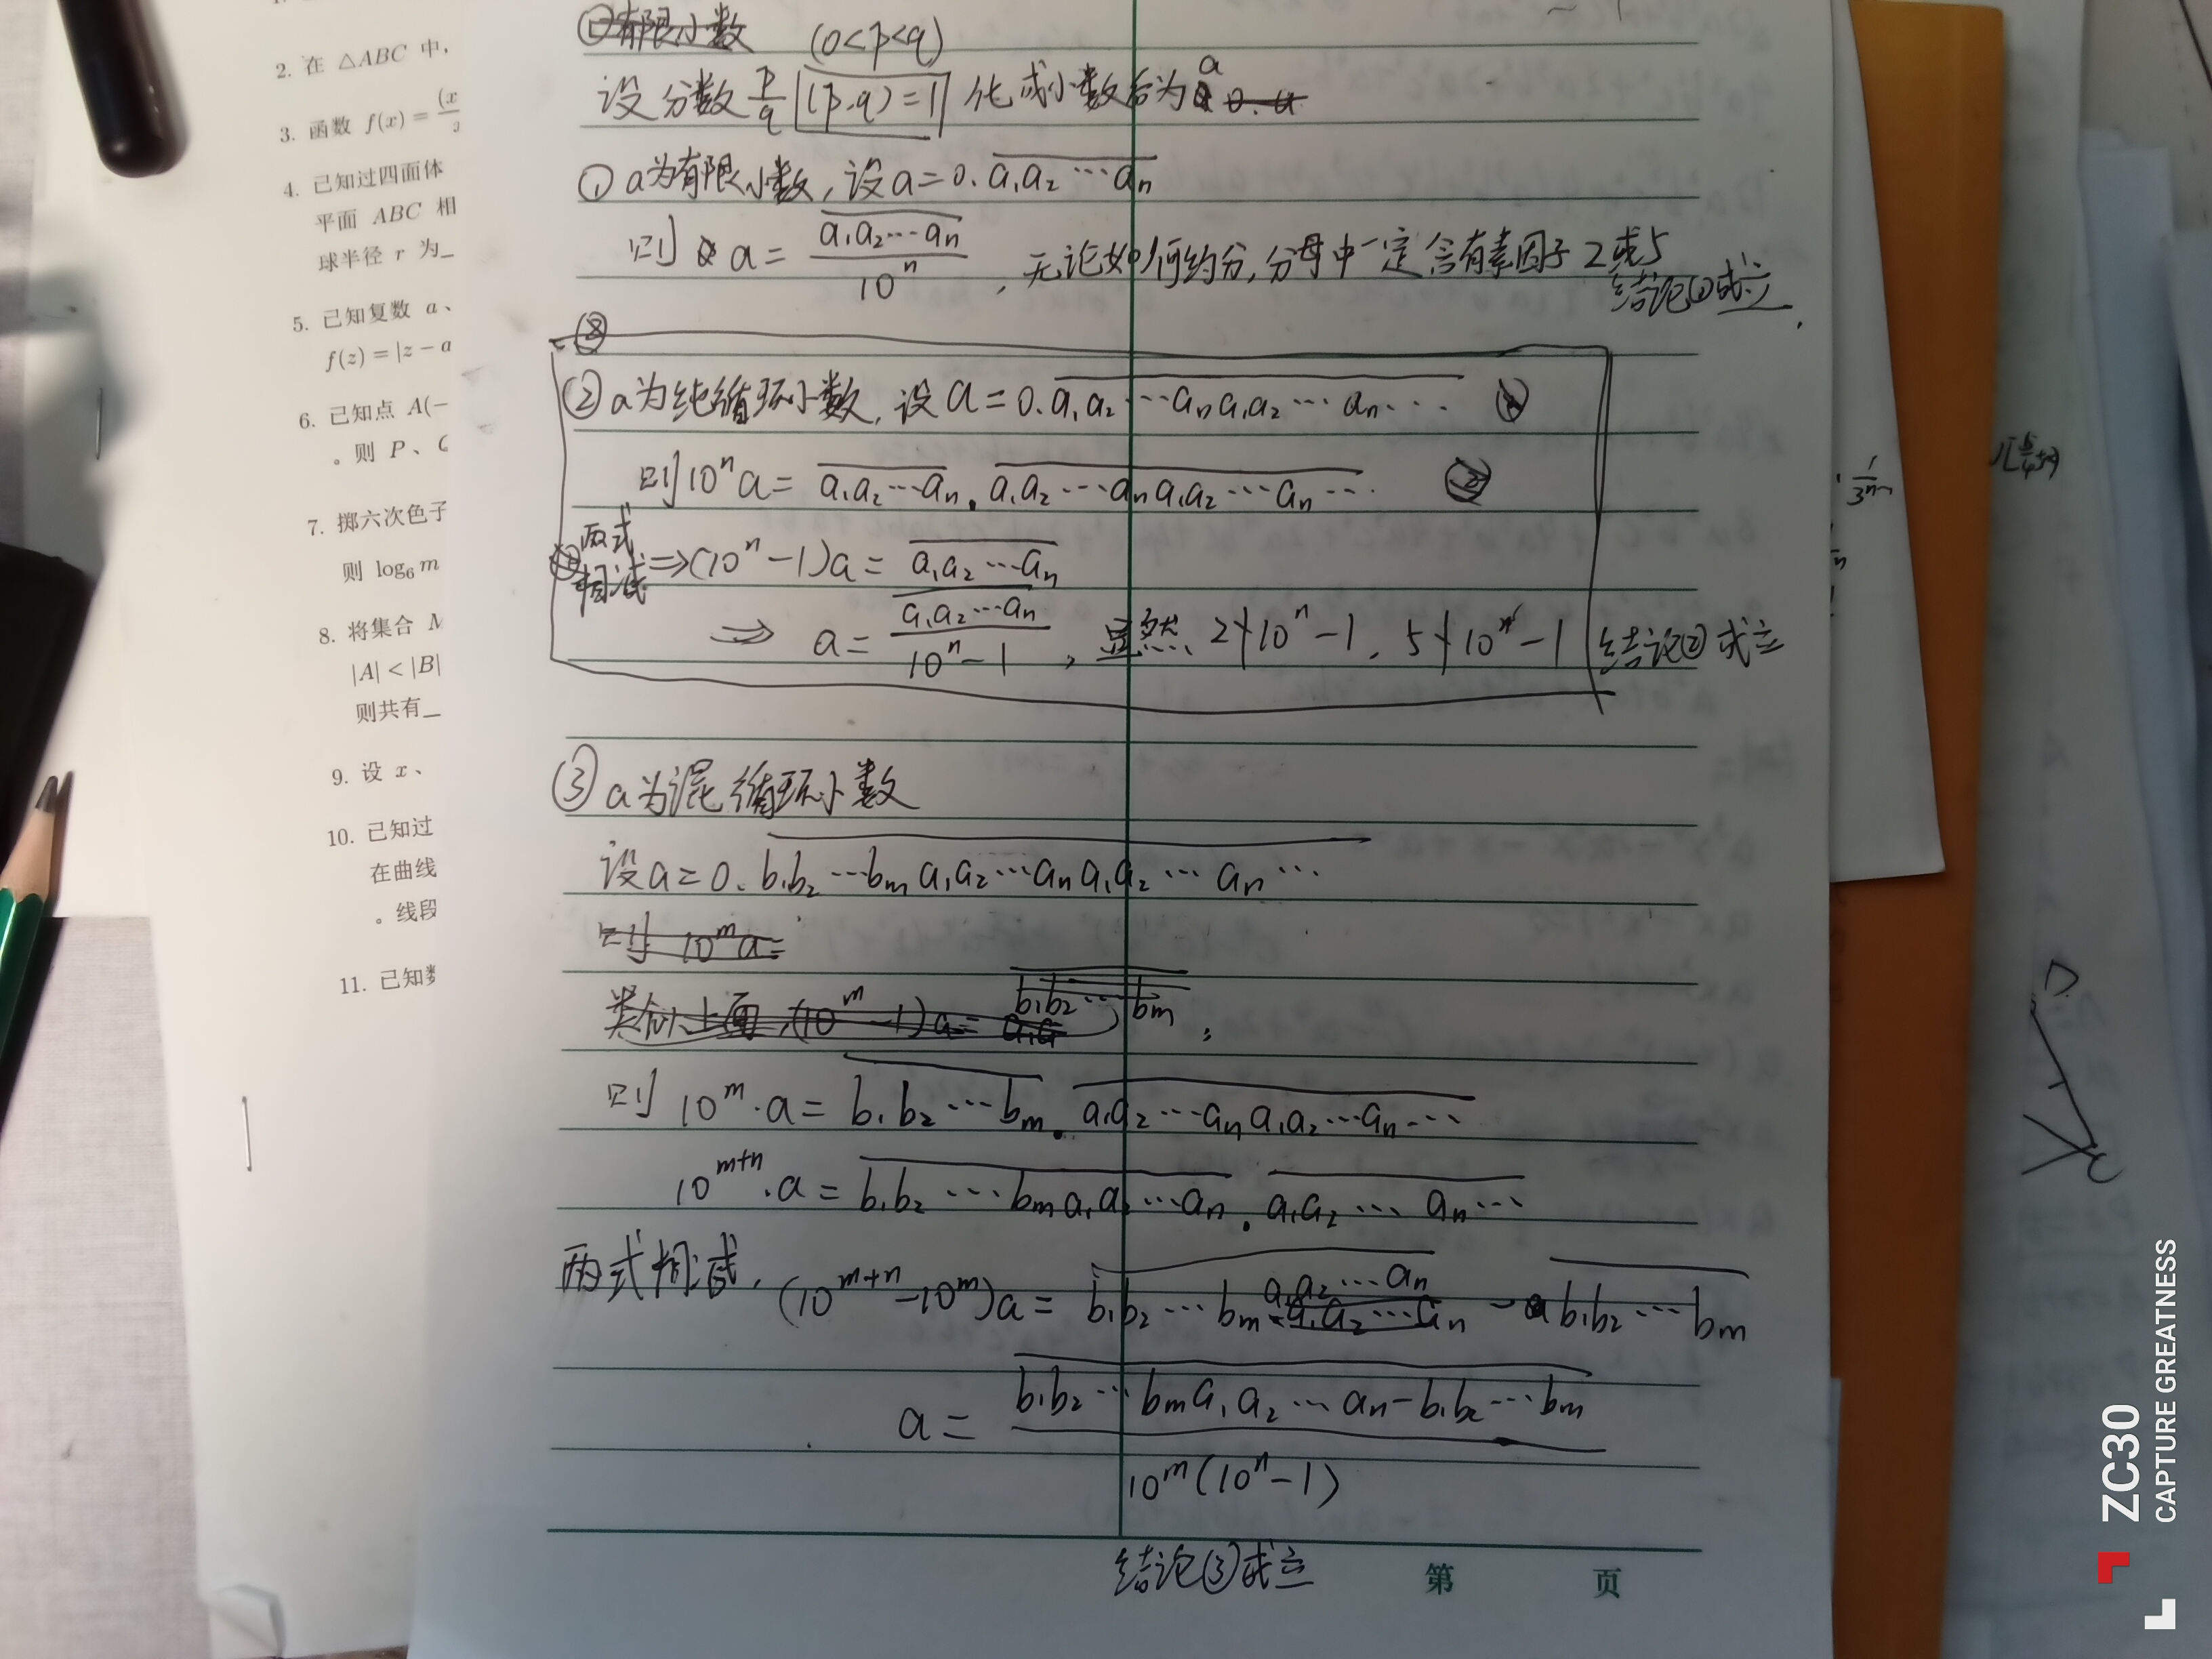 2. 在 △ABC 中,
3. 函数 f(x) = (x
4. 已知过四面体
平面 ABC 相
球半径 r 为_
5. 已知复数 a、
f(z) = |z − a
6. 已知点 A(−
。则 P、
7. 掷六次色子
则 log₆ m
8. 将集合 M
|A| < |B|
则共有_
9. 设 x、
10. 已知过
在曲线
。线段
11. 已知数
①有限小数 (0<p<q)
设分数 p/q (p,q)=1 化成小数后为 a
① a为有限小数, 设a=0.a₁a₂⋯aₙ
则 a = a₁a₂⋯aₙ / 10ⁿ , 无论如何约分, 分母中一定含有素因子2或5
结论①成立.
② a为纯循环小数, 设a=0.a₁a₂⋯aₙa₁a₂⋯aₙ⋯
则10ⁿa = a₁a₂⋯aₙ.a₁a₂⋯aₙa₁a₂⋯aₙ⋯
两式相减 ⇒(10ⁿ−1)a = a₁a₂⋯aₙ
⇒ a = a₁a₂⋯aₙ / 10ⁿ−1 , 显然 2∤10ⁿ−1, 5∤10ⁿ−1 结论②成立
③ a为混循环小数
设a=0.b₁b₂⋯bₘa₁a₂⋯aₙa₁a₂⋯aₙ⋯
则 10ᵐa=
类似上面,(10ᵐ−1)a= b₁b₂⋯bₘ,
则 10ᵐ·a = b₁b₂⋯bₘ.a₁a₂⋯aₙa₁a₂⋯aₙ⋯
10ᵐ⁺ⁿ·a = b₁b₂⋯bₘa₁a₂⋯aₙ.a₁a₂⋯aₙ⋯
两式相减, (10ᵐ⁺ⁿ−10ᵐ)a = b₁b₂⋯bₘa₁a₂⋯aₙ − b₁b₂⋯bₘ
a = b₁b₂⋯bₘa₁a₂⋯aₙ−b₁b₂⋯bₘ / 10ᵐ(10ⁿ−1)
结论③成立
第 页
D
C
ZC30
CAPTURE GREATNESS